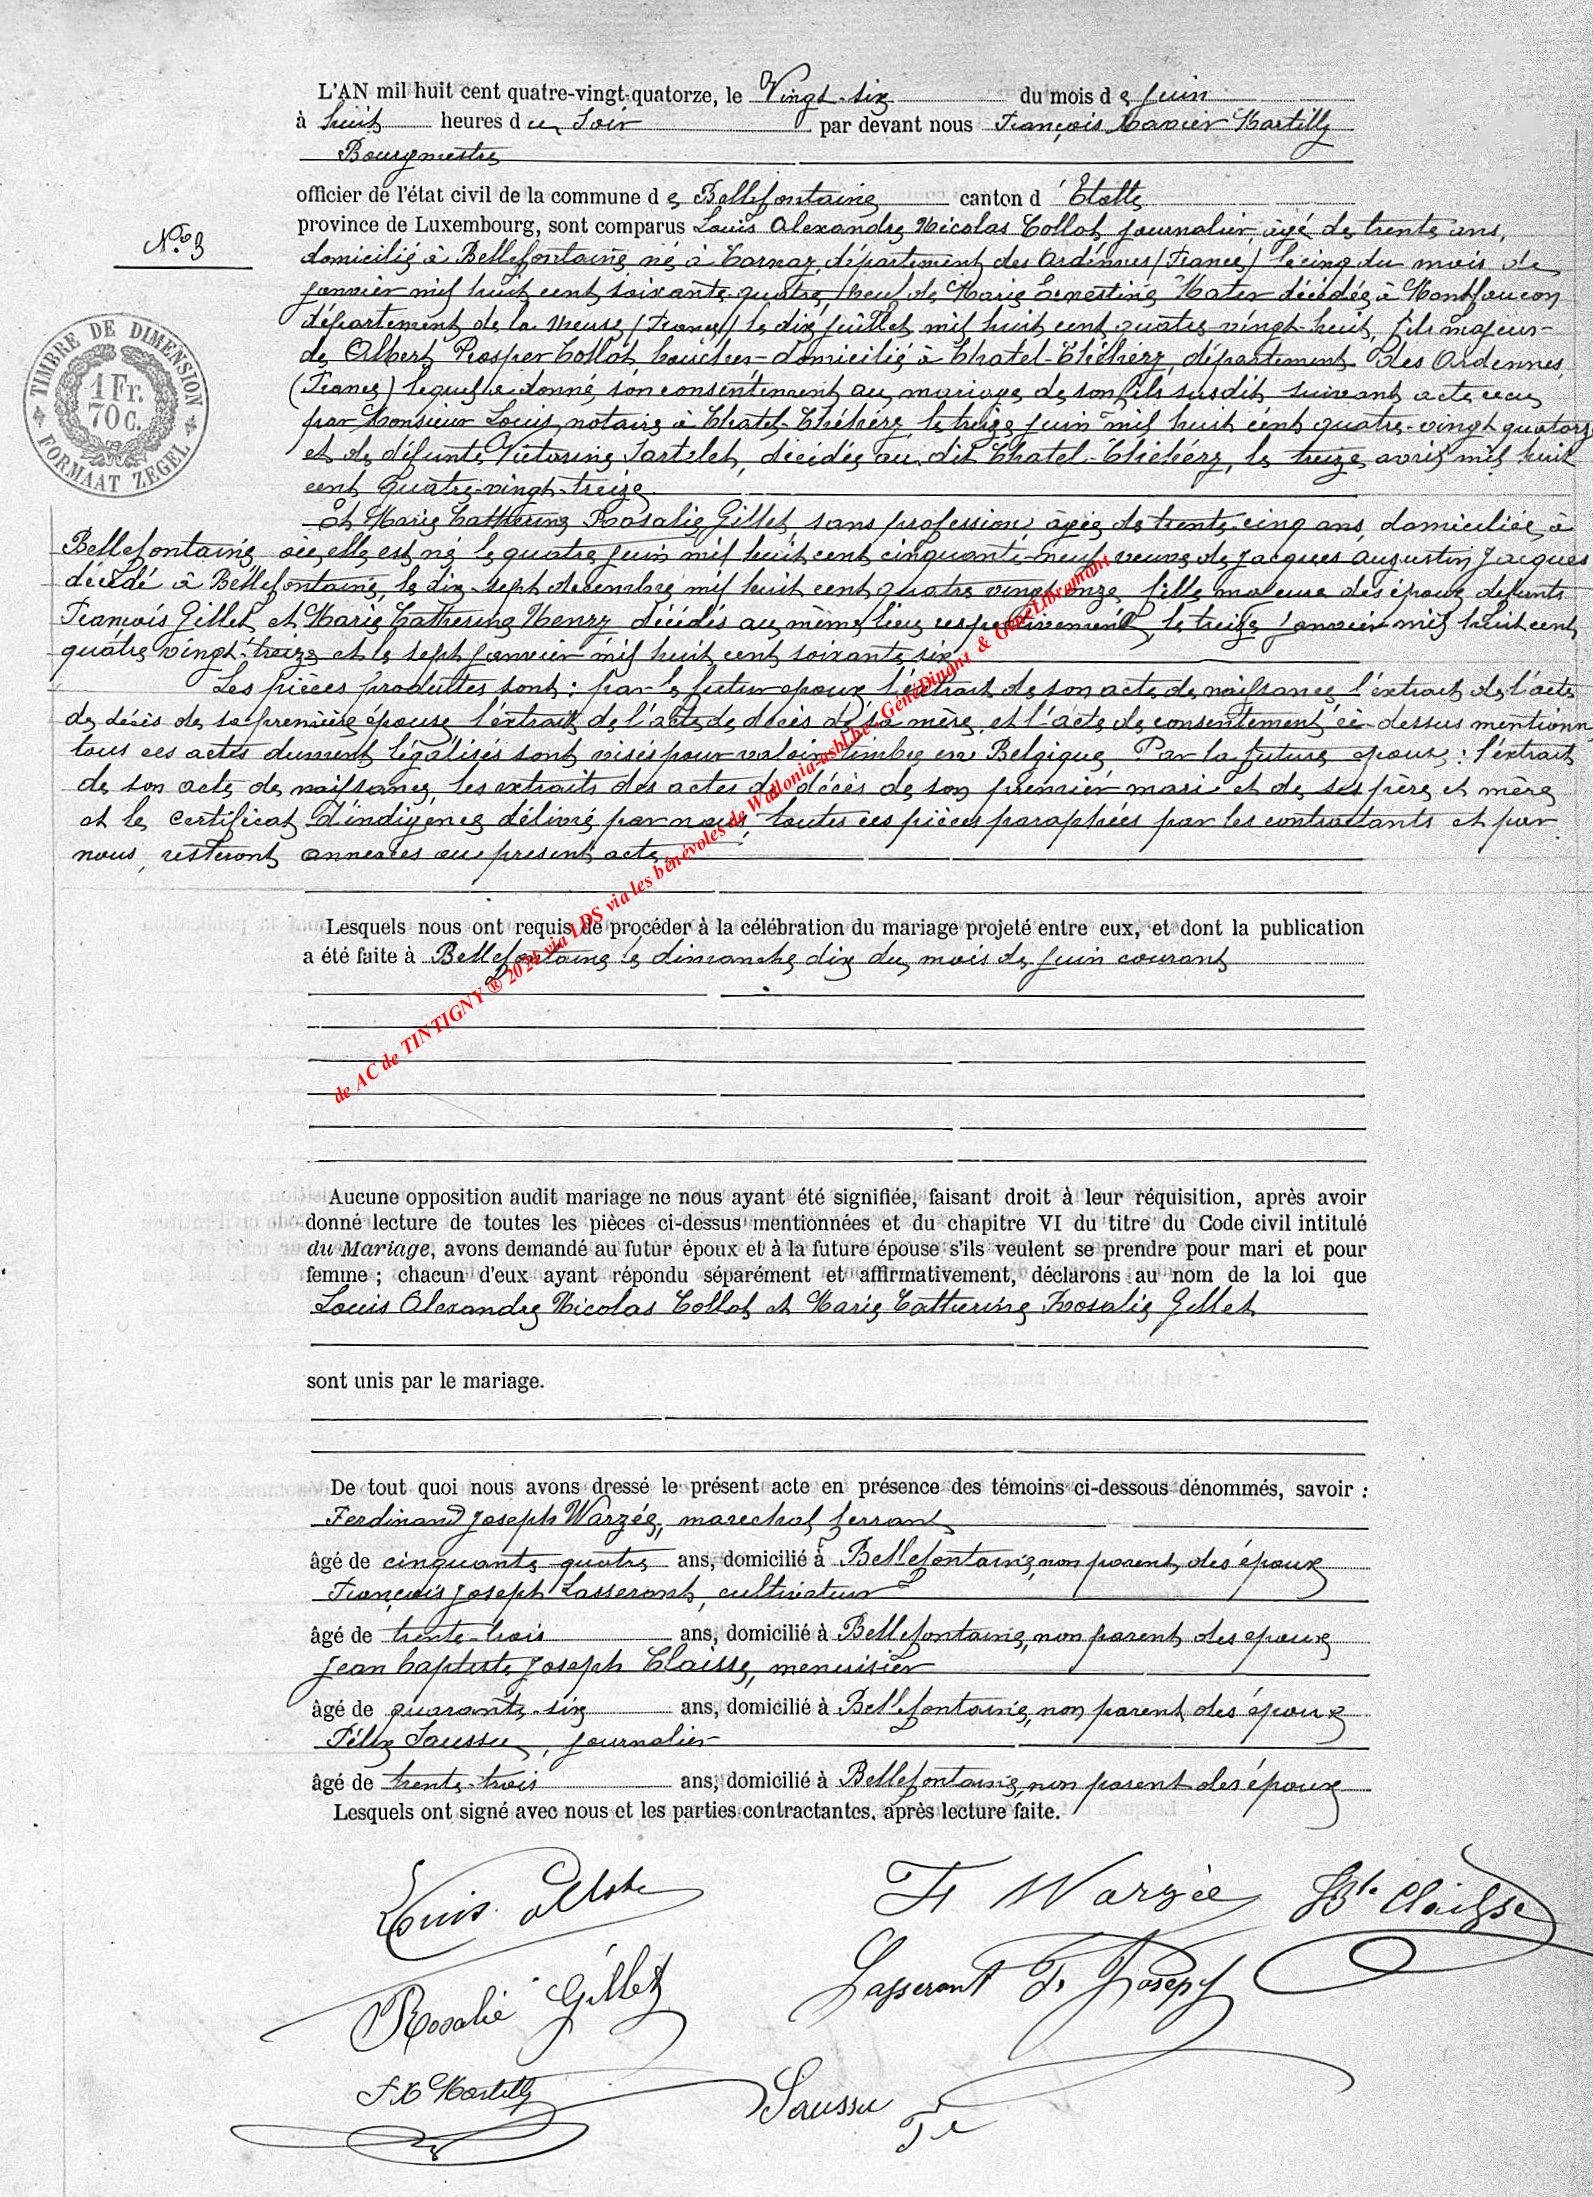 L'AN mil huit cent quatre-vingt-quatorze, le Vingt-six du mois de juin
à huit heures du Soir par devant nous François Xavier Martilly
Bourgmestre
officier de l'état civil de la commune de Bellefontaine canton d'Etalle
N° 3
province de Luxembourg, sont comparus Louis Alexandre Nicolas Collot, journalier, âgé de trente ans,
domicilié à Bellefontaine, né à Cornay, département des Ardennes (France) le cinq du mois de
janvier mil huit cent soixante-quatre, veuf de Marie Ernestine Mater décédée à Montfaucon
département de la Meuse (France) le dix juillet mil huit cent quatre-vingt-huit, fils majeur
de Albert Prosper Collot boucher domicilié à Chatel-Chéhéry, département des Ardennes
(France) lequel a donné son consentement au mariage de son fils susdit suivant acte reçu
par Monsieur Louis, notaire à Chatel-Chéhéry le treize juin mil huit cent quatre-vingt quatorze
et de défunte Victorine Tartelet, décédée au dit Chatel-Chéhéry, le treize avril mil huit
cent quatre-vingt-treize.
TIMBRE DE DIMENSION
1 Fr.
70 C.
FORMAAT ZEGEL
Et Marie Catherine Rosalie Gillet, sans profession, âgée de trente cinq ans, domiciliée à
Bellefontaine, où elle est né le quatre juin mil huit cent cinquante-neuf, veuve de Jacques Augustin Jacques
décédé à Bellefontaine, le dix-sept décembre mil huit cent quatre vingt onze, fille majeure des époux défunts
François Gillet et Marie Catherine Henry décédés au même lieu respectivement, le treize janvier mil huit cent
quatre vingt-treize et le sept janvier mil huit cent soixante six
Les pièces produites sont : par le futur époux l'extrait de son acte de naissance, l'extrait de l'acte
de décès de sa première épouse, l'extrait de l'acte de décès de sa mère, et l'acte de consentement ci-dessus mentionné
tous ces actes dument légalisés sont visés pour valoir timbre en Belgique. Par la future épouse : l'extrait
de son acte de naissance, les extraits des actes de décès de son premier mari et de ses père et mère
et le certificat d'indigence délivré par nous, toutes ces pièces paraphées par les contractants et par
nous, resteront annexées au présent acte
Lesquels nous ont requis de procéder à la célébration du mariage projeté entre eux, et dont la publication
a été faite à Bellefontaine le dimanche dix du mois de juin courant
de AC de TINTIGNY ® 2024 via LDS via les bénévoles de Wallonia-asbl.be - GénéDinant & GénéLibramont
Aucune opposition audit mariage ne nous ayant été signifiée, faisant droit à leur réquisition, après avoir
donné lecture de toutes les pièces ci-dessus mentionnées et du chapitre VI du titre du Code civil intitulé
du Mariage, avons demandé au futur époux et à la future épouse s'ils veulent se prendre pour mari et pour
femme ; chacun d'eux ayant répondu séparément et affirmativement, déclarons au nom de la loi que
Louis Alexandre Nicolas Collot et Marie Catherine Rosalie Gillet
sont unis par le mariage.
De tout quoi nous avons dressé le présent acte en présence des témoins ci-dessous dénommés, savoir :
Ferdinand Joseph Warzée, marechal ferrant
âgé de cinquante-quatre ans, domicilié à Bellefontaine, non parent des époux
François Joseph Lasseront, cultivateur
âgé de trente-trois ans, domicilié à Bellefontaine, non parent des epoux
Jean baptiste Joseph Claisse, menuisier
âgé de quarante-six ans, domicilié à Bellefontaine, non parent des époux
Félix Saussu, journalier
âgé de trente-trois ans, domicilié à Bellefontaine, non parent des époux
Lesquels ont signé avec nous et les parties contractantes, après lecture faite.
Louis Collot
F Warzée
Bte Claisse
Rosalie Gillet
Lasseront F Joseph
F X Martilly
Saussu Fe